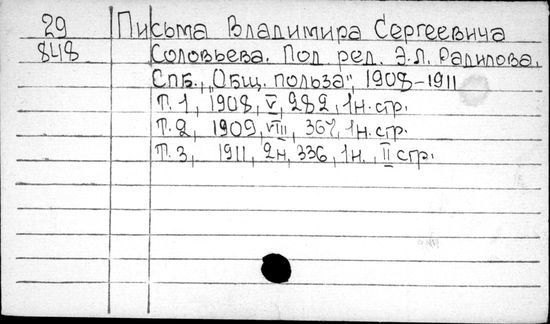 29 Письма Владимира Сергеевича
848 Соловьева. Под ред. Э.Л. Радлова.
СПБ., "Общ. польза", 1908-1911
Т. 1, 1908, V, 282, 1н. стр.
Т. 2, 1909, VIII, 367, 1н. стр.
Т. 3, 1911, 2н, 336, 1н. II стр.